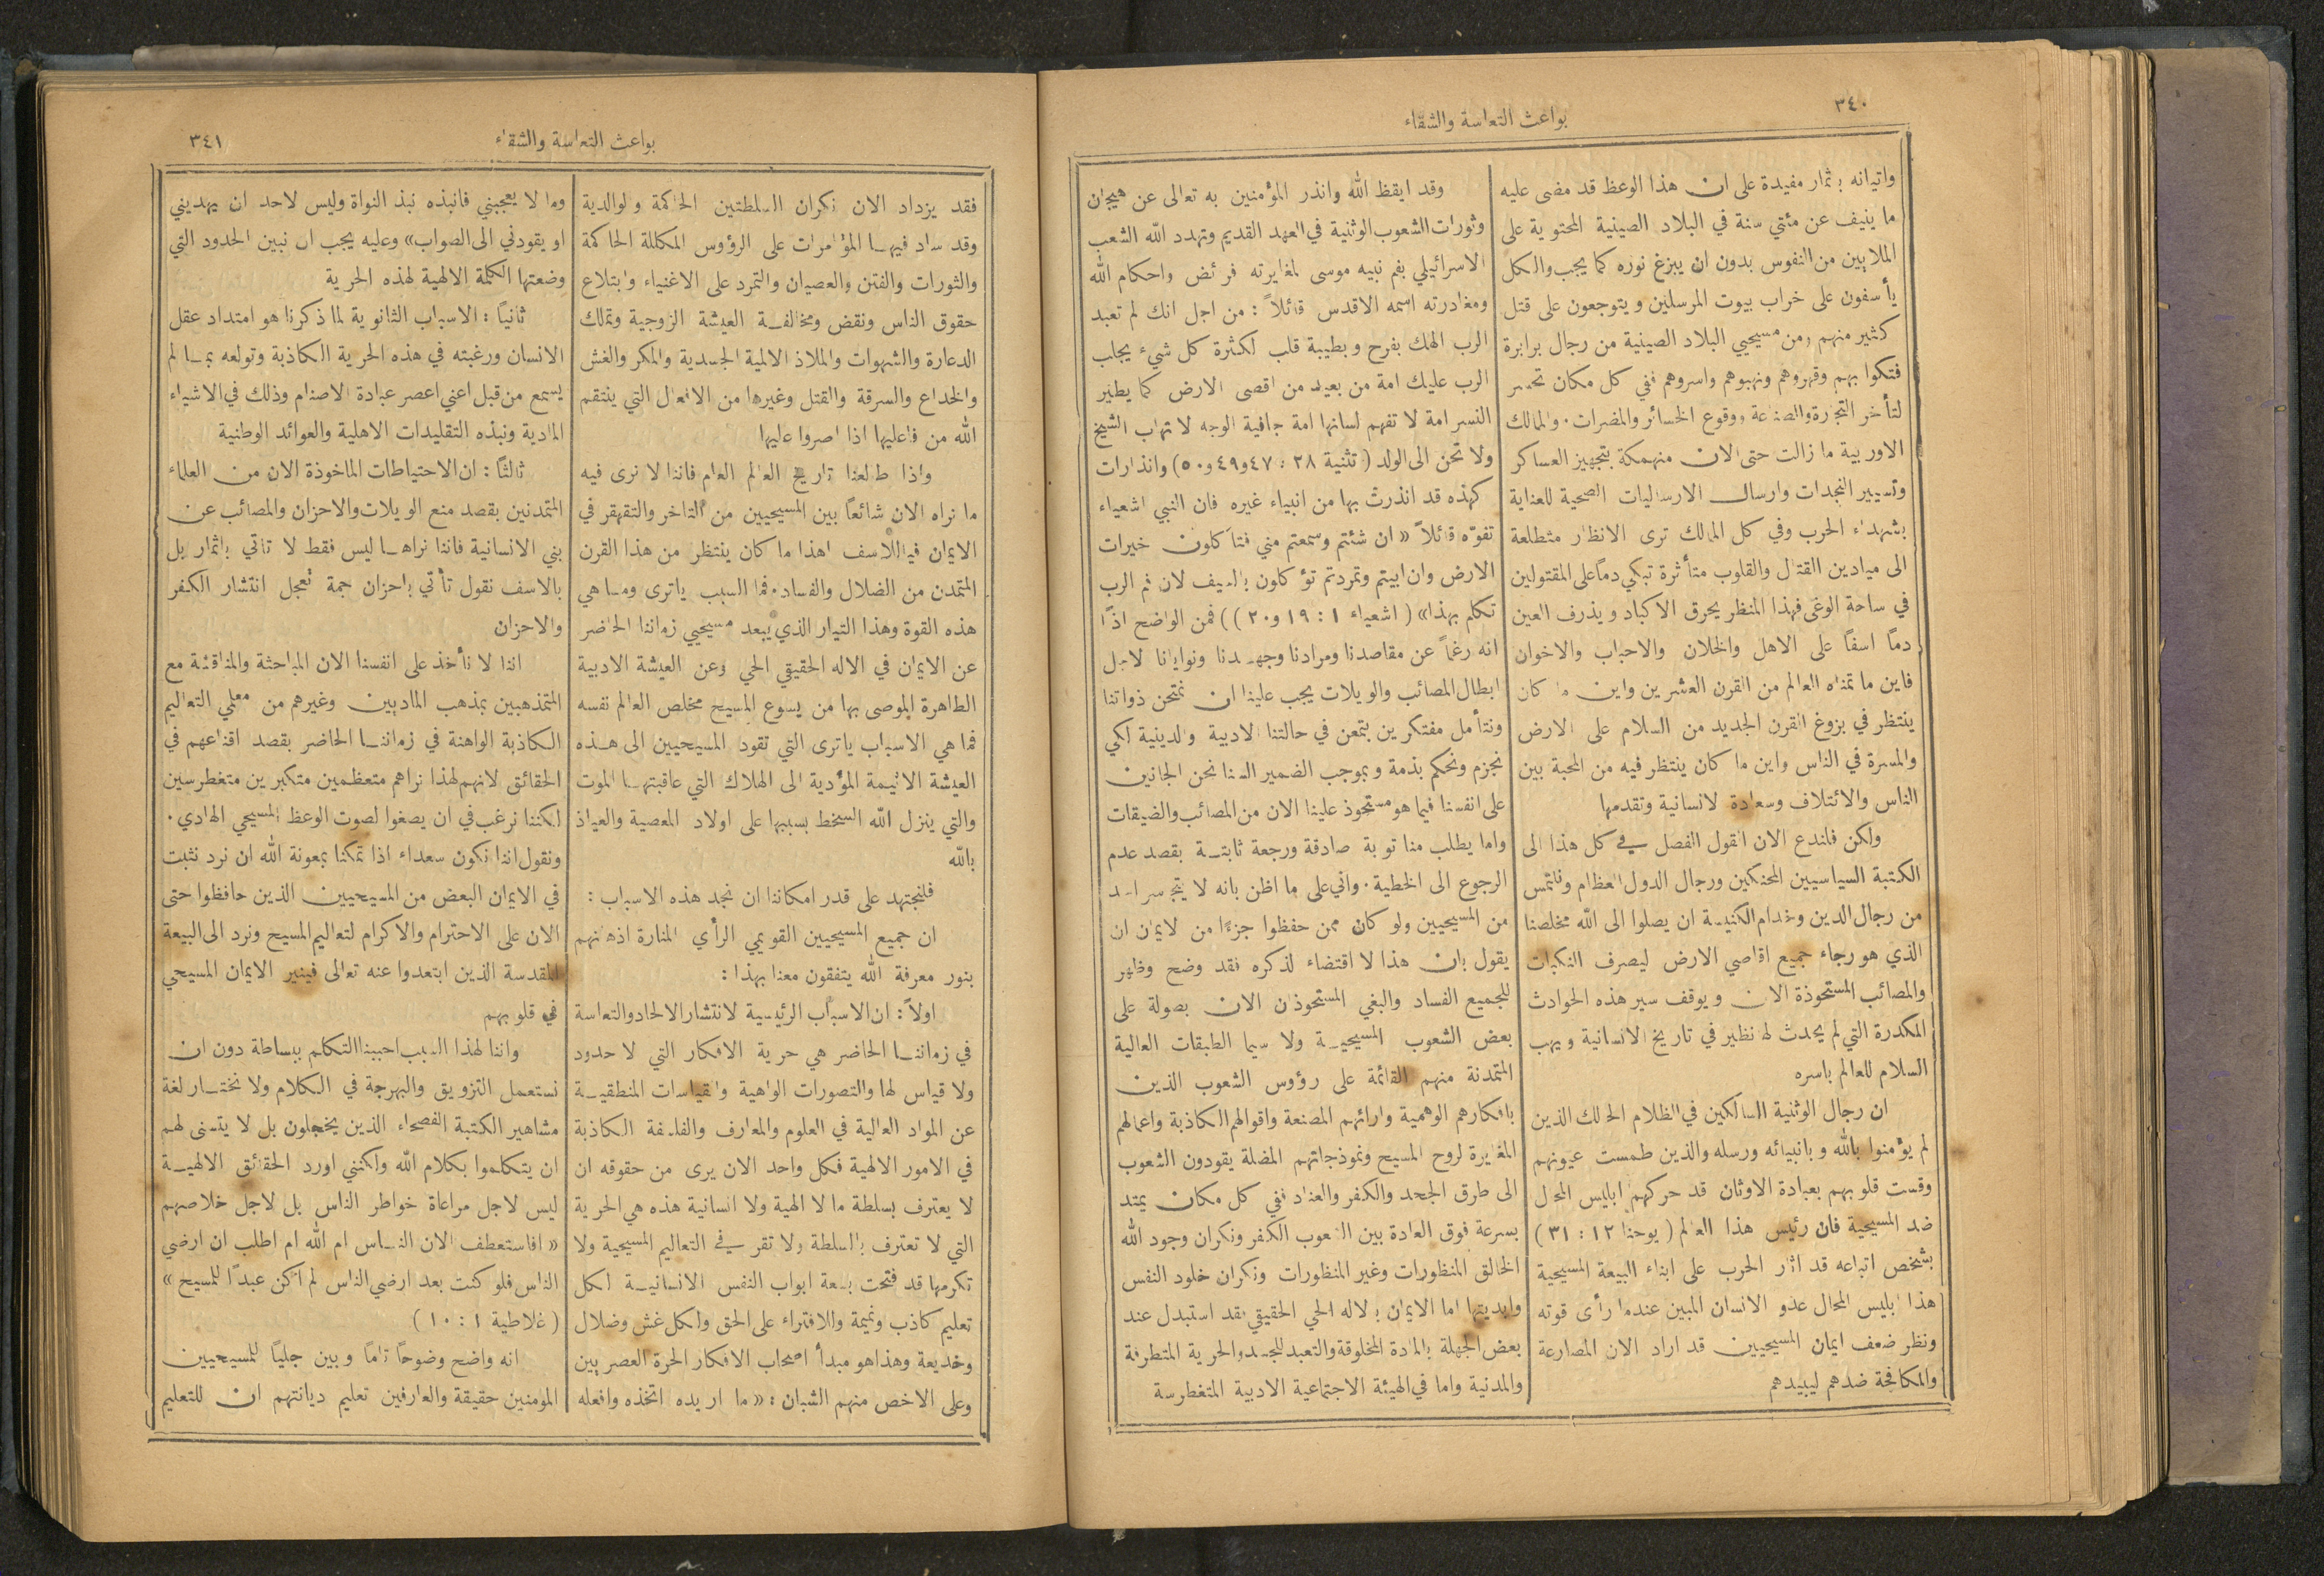 ٣٤٠
بواعث التعاسة والشقاء
واتيانه بثمار مفيدة على ان هذا الوعظ قد مضى عليه
ما ينيف عن مئتي سنة في البلاد الصينية المحتوية على
الملايين من النفوس بدون ان يبزغ نوره كما يجب والكل
يأسفون على خراب بيوت المرسلين ويتوجعون على قتل
كثير منهم ومن مسيحيي البلاد الصينية من رجال برابرة
فتكوا بهم وقهروهم ونهبوهم واسروهم ففي كل مكان تحسر
لتأخر التجارة والصناعة ووقوع الخسائر والمضرات. والممالك
الاوربية ما زالت حتى الان منهمكة بتجهيز العساكر
وتسيير النجدات وارسال الارساليات الصحية للعناية
بشهداء الحرب وفي كل الممالك ترى الانظار متطلعة
الى ميادين القتال والقلوب متأثرة تبكي دماً على المقتولين
في ساحة الوغى فهذا المنظر يحرق الاكباد ويذرف العين
دمًا اسفًا على الاهل والخلان والاحباب والاخوان
فاين ما تمناه العالم من القرن العشرين واين ما كان
ينتظر في بزوغ القرن الجديد من السلام على الارض
والمسرة في الناس واين ما كان ينتظر فيه من المحبة بين
الناس والائتلاف وسعادة الانسانية وتقدمها
ولكن فلندع الان القول الفصل في كل هذا الى
الكتبة السياسيين المحنكين ورجال الدول العظام ونلتمس
من رجال الدين وخدام الكنيسة ان يصلوا الى الله مخلصنا
الذي هو رجاء جميع اقاصي الارض ليصرف النكبات
والمصائب المستحوذة الان ويوقف سير هذه الحوادث
المكدرة التي لم يحدث لها نظير في تاريخ الانسانية ويهب
السلام للعالم باسره
ان رجال الوثنية السالكين في الظلام الحالك الذين
لم يؤمنوا بالله وبانبيائه ورسله والذين طمست عيونهم
وقست قلوبهم بعبادة الاوثان قد حركهم ابليس المحال
ضد المسيحية فان رئيس هذا العالم (يوحنا ١٢ : ٣١)
بشخص اتباعه قد اثار الحرب على ابناء البيعة المسيحية
هذا ابليس المحال عدو الانسان المبين عندما رأى قوته
ونظر ضعف ايمان المسيحيين قد اراد الان المصارعة
والمكافحة ضدهم ليبيدهم
وقد ايقظ الله وانذر المؤمنين به تعالى عن هيجان
وثورات الشعوب الوثنية في العهد القديم وتهدد الله الشعب
الاسرائيلي بفم نبيه موسى لمغايرته فرائض واحكام الله
ومغادرته اسمه الاقدس قائلاً : من اجل انك لم تعبد
الرب الهك بفرح وبطيبة قلب لكثرة كل شيء يجلب
الرب عليك امة من بعيد من اقصى الارض كما يطير
النسر امة لا تفهم لسانها امة جافية الوجه لا تهاب الشيخ
ولا تحن الى الولد (تثنية ٢٨ : ٤٧ و٤٩ و٥٠) وانذارات
كهذه قد انذرت بها من انبياء غيره فان النبي اشعياء
تفوّه قائلاً «ان شئتم وسمعتم مني فتأكلون خيرات
الارض وان ابيتم وتمردتم تؤكلون بالسيف لان فم الرب
تكلم بهذا» (اشعياء ١ : ١٩ و٢٠)) فمن الواضح اذًا
انه رغماً عن مقاصدنا ومرادنا وجهدنا ونوايانا لاجل
ابطال المصائب والويلات يجب علينا ان نمتحن ذواتنا
ونتأمل مفتكرين بتمعن في حالتنا الادبية والدينية لكي
نجزم ونحكم بذمة وبموجب الضمير السنا نحن الجانين
على انفسنا فيما هو مستحوذ علينا الان من المصائب والضيقات
واما يطلب منا توبة صادقة ورجعة ثابتة بقصد عدم
الرجوع الى الخطية. واني على ما اظن بانه لا يتجاسر احد
من المسيحيين ولو كان ممن حفظوا جزءًا من الايمان ان
يقول بان هذا لا اقتضاء لذكره فقد وضح وظهر
للجميع الفساد والبغي المستحوذان الان بصولة على
بعض الشعوب المسيحية ولا سيما الطبقات العالية
المتمدنة منهم القائمة على رؤوس الشعوب الذين
بافكارهم الوهمية وارائهم المصنعة واقوالهم الكاذبة واعمالهم
المغايرة لروح المسيح ونموذجاتهم المضلة يقودون الشعوب
الى طرق الجحد والكفر والعناد ففي كل مكان يمتد
بسرعة فوق العادة بين الشعوب الكفر ونكران وجود الله
الخالق المنظورات وغير المنظورات ونكران خلود النفس
وابديتها اما الايمان بالاله الحي الحقيقي فقد استبدل عند
بعض الجهلة بالمادة المخلوقة والتعبد للجسد والحرية المتطرفة
والمدنية واما في الهيئة الاجتماعية الادبية المتغطرسة
بواعث التعاسة والشقاء
٣٤١
فقد يزداد الان نكران السلطتين الحاكمة والوالدية
وقد ساد فيها المؤامرات على الرؤوس المكللة الحاكمة
والثورات والفتن والعصيان والتمرد على الاغنياء وابتلاع
حقوق الناس ونقض ومخالفة العيشة الزوجية وتملك
الدعارة والشهوات والملاذ الالمية الجسدية والمكر والغش
والخداع والسرقة والقتل وغيرها من الافعال التي ينتقم
الله من فاعليها اذا اصروا عليها
واذا طالعنا تاريخ العالم العام فاننا لا نرى فيه
ما نراه الان شائعاً بين المسيحيين من التاخر والتقهقر في
الايمان فيا للاسف اهذا ما كان ينتظر من هذا القرن
المتمدن من الضلال والفساد. فما السبب ياترى وما هي
هذه القوة وهذا التيار الذي يبعد مسيحيي زماننا الحاضر
عن الايمان في الاله الحقيقي الحي وعن العيشة الادبية
الطاهرة الموصى بها من يسوع المسيح مخلص العالم نفسه
فما هي الاسباب ياترى التي تقود المسيحيين الى هذه
العيشة الاثيمة المؤدية الى الهلاك التي عاقبتها الموت
والتي ينزل الله السخط بسببها على اولاد المعصية والعياذ
بالله
فلنجتهد على قدر امكاننا ان نجد هذه الاسباب :
ان جميع المسيحيين القويمي الرأي المنارة اذهانهم
بنور معرفة الله يتفقون معنا بهذا :
اولاً : ان الاسباب الرئيسية لانتشار الالحاد والتعاسة
في زماننا الحاضر هي حرية الافكار التي لا حدود
ولا قياس لها والتصورات الواهية والقياسات المنطقية
عن المواد العالية في العلوم والمعارف والفلسفة الكاذبة
في الامور الالهية فكل واحد الان يرى من حقوقه ان
لا يعترف بسلطة ما لا الهية ولا انسانية هذه هي الحرية
التي لا تعترف بالسلطة ولا تقر في التعاليم المسيحية ولا
تكرمها قد فتحت بسعة ابواب النفس الانسانية لكل
تعليم كاذب ونميمة والافتراء على الحق ولكل غش وضلال
وخديعة وهذا هو مبدأ اصحاب الافكار الحرة العصريين
وعلى الاخص منهم الشبان : «ما اريده اتخذه وافعله
وما لا يعجبني فانبذه نبذ النواة وليس لاحد ان يهديني
او يقودني الى الصواب» وعليه يجب ان نبين الحدود التي
وضعتها الكلمة الالهية لهذه الحرية
ثانياً : الاسباب الثانوية لما ذكرنا هو امتداد عقل
الانسان ورغبته في هذه الحرية الكاذبة وتولعه بما لم
يسمع من قبل اعني اعصر عبادة الاصنام وذلك في الاشياء
المادية ونبذه التقليدات الاهلية والعوائد الوطنية
ثالثًا : ان الاحتياطات الماخوذة الان من العلماء
المتمدنين بقصد منع الويلات والاحزان والمصائب عن
بني الانسانية فاننا نراها ليس فقط لا تاتي باثمار بل
بالاسف نقول تأتي باحزان جمة تعجل انتشار الكفر
والاحزان
اننا لا نأخذ على انفسنا الان المباحثة والمناقشة مع
المتمذهبين بمذهب الماديين وغيرهم من معلمي التعاليم
الكاذبة الواهنة في زماننا الحاضر بقصد اقناعهم في
الحقائق لانهم لهذا نراهم متعظمين متكبرين متغطرسين
لكننا نرغب في ان يصغوا لصوت الوعظ المسيحي الهادي.
ونقول اننا نكون سعداء اذا تمكنا بمعونة الله ان نرد نثبت
في الايمان البعض من المسيحيين الذين حافظوا حتى
الان على الاحترام والاكرام لتعاليم المسيح ونرد الى البيعة
المقدسة الذين ابتعدوا عنه تعالى فينير الايمان المسيحي
في قلوبهم
واننا لهذا السبب احببنا التكلم ببساطة دون ان
نستعمل التزويق والبهرجة في الكلام ولا نختار لغة
مشاهير الكتبة الفصحاء الذين يخجلون بل لا يتسنى لهم
ان يتكلموا بكلام الله ولكنني اورد الحقائق الالهية
ليس لاجل مراعاة خواطر الناس بل لاجل خلاصهم
«افاستعطف الان الناس ام الله ام اطلب ان ارضي
الناس فلو كنت بعد ارضي الناس لم اكن عبدًا للمسيح»
(غلاطية ١ : ١٠)
انه واضح وضوحًا تامًا وبين جليًا للمسيحيين
المومنين حقيقة والعارفين تعليم ديانتهم ان للتعليم